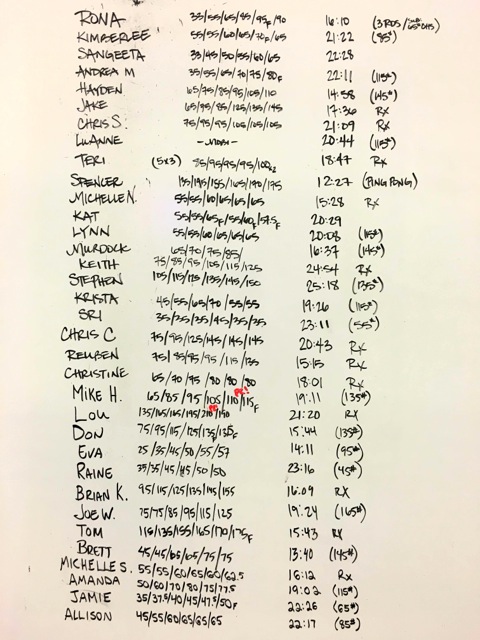 RONA 35/55/65/85/95F/90 16:10 (3 RDS/ 65# OHS)
KIMBERLEE 55/55/60/65/70F/65 21:22 (85#)
SANGEETA 33/45/50/55/60/65 22:28
ANDREA M 35/55/65/70/75/80F 22:11 (115#)
HAYDEN 65/75/85/95/105/110 14:58 (145#)
JAKE 65/95/85/125/135/145 17:36 RX
CHRIS S. 75/95/95/105/105/105 21:09 RX
LUANNE 20:44 (115#)
TERI (5x3) 85/95/95/95/100x2 18:47 RX
SPENCER 135/145/155/165/190/175 12:27 (PING PONG)
MICHELLE N. 55/55/60/65/65/65 15:28 RX
KAT 55/55/65F/55/60F/57.5F 20:29
LYNN 55/55/60/65/65/65 20:08 (115#)
MURDOCK 65/70/75/85/ 16:37 (145#)
KEITH 75/85/95/105/115/125 24:54 RX
STEPHEN 105/115/125/135/145/150 25:18 (135#)
KRISTA 45/55/65/70/55/55 19:26 (115#)
SRI 35/35/35/45/35/35 23:11 (55#)
CHRIS C 75/95/125/145/145/145 20:43 RX
REUBEN 75/85/95/95/115/135 15:15 RX
CHRISTINE 65/70/75/80/80/80 18:01 RX
MIKE H. 65/85/95/105/110/115F PR! 19:11 (135#)
LOU 135/165/165/195/210/190 PR 21:20 RX
DON 75/95/115/125/135F/135F 15:44 (135#)
EVA 25/35/45/50/55/57 14:11 (95#)
RAINE 35/35/45/45/50/50 23:16 (45#)
BRIAN K. 95/115/125/135/145/155 16:09 RX
JOE W. 75/75/85/95/115/125 19:24 (165#)
TOM 115/135/155/165/170/175F 15:43 RX
BRETT 45/45/65/65/75/75 13:40 (145#)
MICHELLE S. 55/55/60/65/60/62.5 16:12 RX
AMANDA 50/60/70/80/75/77.5 19:02 (115#)
JAMIE 35/37.5/40/45/47.5/50F 22:26 (65#)
ALLISON 45/55/60/65/65/65 22:17 (85#)